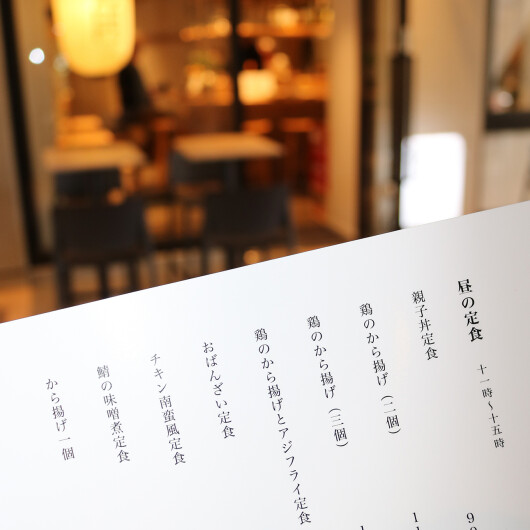 昼の定食 十一時〜十五時
親子丼定食
鶏のから揚げ（二個）
鶏のから揚げ（三個）
鶏のから揚げとアジフライ定食
おばんざい定食
チキン南蛮風定食
鯖の味噌煮定食
から揚げ一個